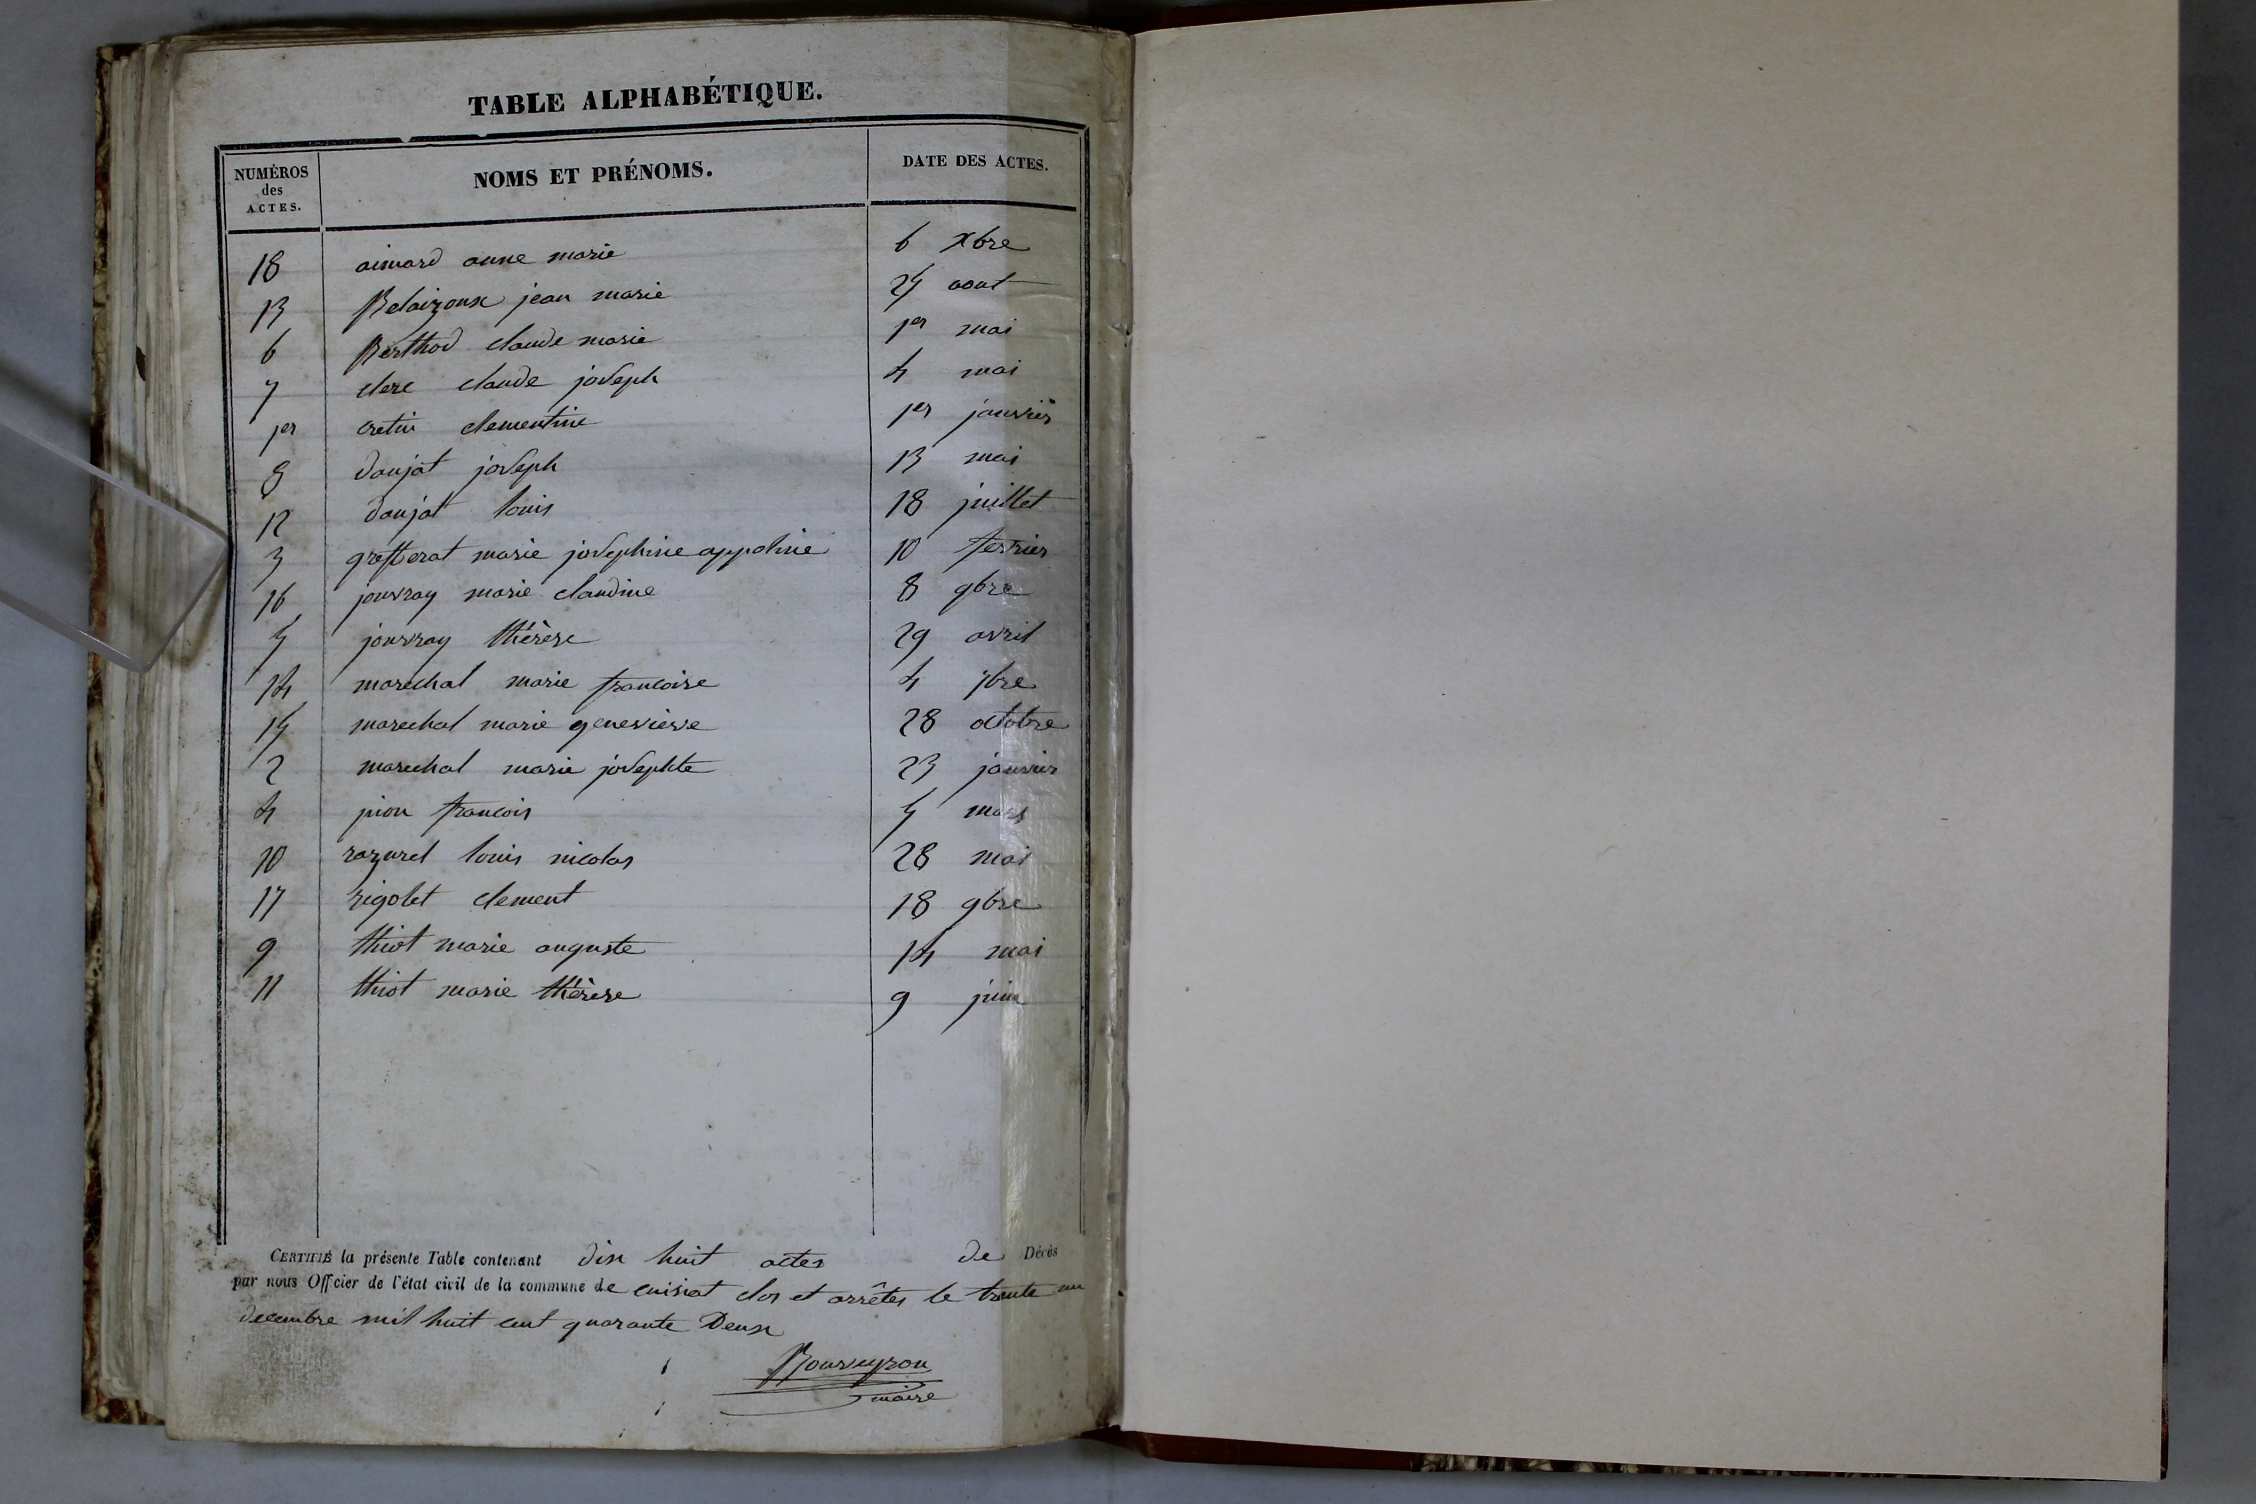 TABLE ALPHABÉTIQUE.
NUMÉROS des ACTES. NOMS ET PRÉNOMS. DATE DES ACTES.
18 aimard anne marie 6 xbre
13 Belaizoux jean marie 25 aout
6 Berthod claude marie 1er mai
7 clerc claude joseph 4 mai
1er cretin clementine 1er janvier
8 daujat joseph 13 mai
12 daujat louis 18 juillet
3 grefferat marie josephine appoline 10 fevrier
16 jouvray marie claudine 8 9bre
5 jouvray thérèse 29 avril
14 marechal marie francoise 4 7bre
15 marechal marie genevieve 28 octobre
2 marechal marie josephte 23 janvier
4 pion francois 5 mars
10 razurel louis nicolas 28 mai
17 rigolet clement 18 9bre
9 thiot marie auguste 14 mai
11 thiot marie thérèse 9 juin
CERTIFIÉ la présente Table contenant dix huit actes de Décès
par nous Officier de l'état civil de la commune de cuisiat clos et arrêtes le trente un
decembre mil huit cent quarante Deux
Bouveyron
maire